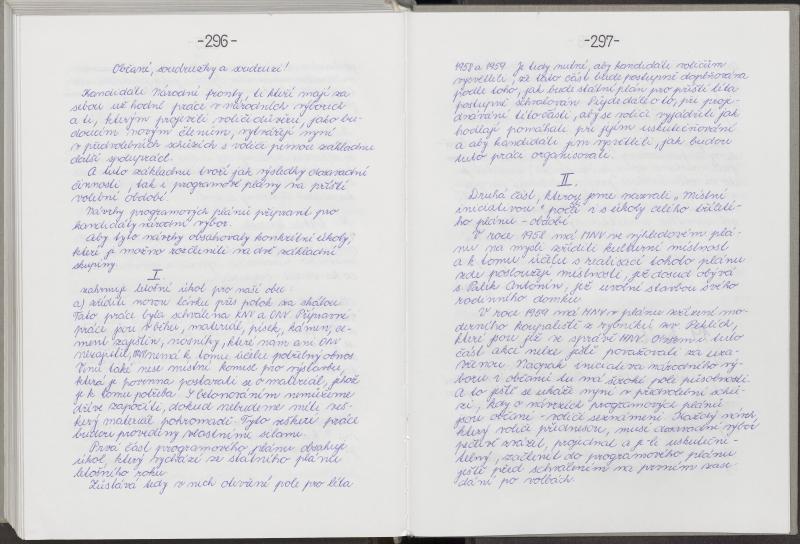 -296-
Občani, soudružky a soudruzi!
Kandidáti Národní fronty, ti kteří mají za
sebou už hodně práce v národních výborech
a ti, kterým projevili voliči důvěru, jako bu-
doucím novým členům, vytvářejí nyní
v předvolebních schůzích s voliči pevnou základnu
další spolupráce.
A tuto základnu tvoří jak výsledky dosavadní
činnosti, tak i programové plány na příští
volební období.
Návrhy programových plánů připravil pro
kandidáty národní výbor.
Aby tyto návrhy obsahovaly konkretní úkoly,
které je možno rozčlenit na dvě základní
skupiny.
I.
zahrnuje letošní úkol pro naši obec:
a) zřídit novou lávku přes potok za
Tato práce byla schválena KNV a ONV. Přípravné
práce jsou v běhu, materiál, písek, kámen, ce-
ment zajištěn, nosníky, které nám ani ONV
nezajistil, MNV nemá k tomu účelu potřebný obnos.
Vinu také nese místní komise pro výstavbu,
která je povinna postarati se o materiál, jehož
je k tomu potřeba. S betonováním nemůžeme
dříve započíti, dokud nebudeme míti veš-
kerý materiál pohromadě. Tyto veškeré práce
budou prováděny vlastními silami.
Prvá část programového plánu obsahuje
úkol, který vychází ze státního plánu
letošního roku.
Zůstává tedy v nich otevřené pole pro léta
-297-
1958 a 1959. Je tedy nutné, aby kandidáti voličům
vysvětlili, že tato část bude postupně doplňována
podle toho, jak bude státní plán pro příští léta
postupně schvalován. Půjde také o to, při projed-
návání této části, aby se voliči vyjádřili jak
hodlají pomáhati při jejím uskutečňování
a aby kandidáti jim vysvětlili, jak budou
tuto práci organisovati.
II.
Druhá část, kterou jsme nazvali "Místní
iniciativou" počítá i s úkoly celého tříleté-
ho plánu - období.
V roce 1958 má MNV ve výhledovém plá-
nu na mysli zříditi kulturní místnost
a k tomu účelu s realisací tohoto plánu
zde poslouží místnosti, jež dosud obývá
s. Palík Antonín, jež uvolní stavbou svého
rodinného domku.
V roce 1959 má MNV v plánu zřízení mo-
derního koupaliště z rybníků zv. Peklích,
které jsou již ve správě MNV. Ovšem i tuto
část akcí nelze ještě považovati za uza-
vřenou. Naopak iniciativa národního vý-
boru i občanů tu má široké pole působnosti.
A to ještě se ukáže nyní v předvolební schů-
zi, kdy o návrzích programových plánů
jsou občané - voliči seznámeni. Každý návrh,
který voliči přednesou, musí dosavadní výbor
pečlivě zvážit, projednat a je-li uskuteční-
telný, začlenit do programového plánu
ještě před schválením na prvním zase-
dání po volbách.